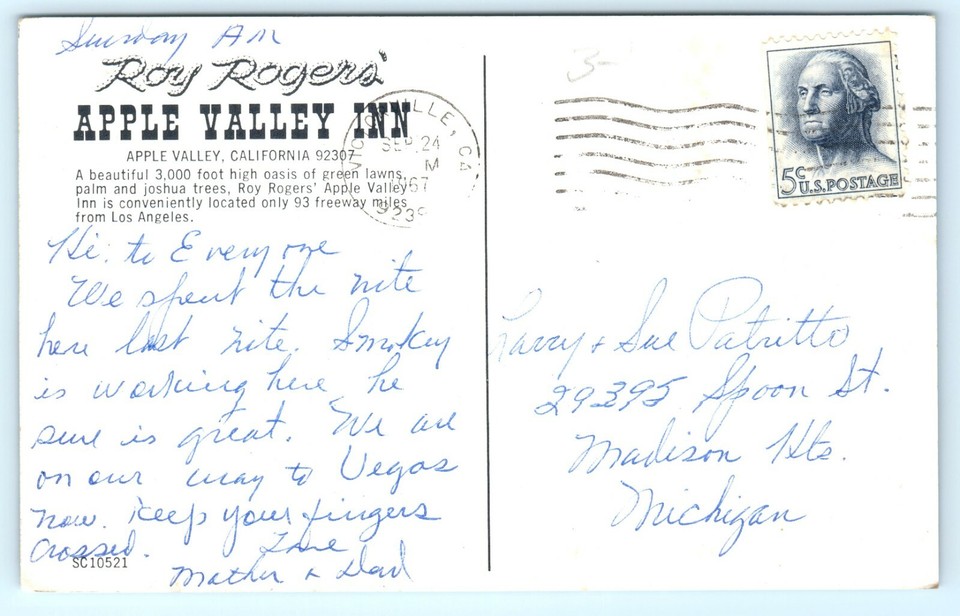 Sunday AM
Roy Rogers'
APPLE VALLEY INN
APPLE VALLEY, CALIFORNIA 92307
A beautiful 3,000 foot high oasis of green lawns,
palm and joshua trees, Roy Rogers' Apple Valley
Inn is conveniently located only 93 freeway miles
from Los Angeles.
Hi: to Everyone
We spent the nite
here last nite. Smokey
is working here he
sure is great. We are
on our way to Vegas
now. Keep your fingers
crossed. Love
Mother & Dad
SC10521
VICTORVILLE, CA
SEP 24
M
1967
3-
5c U.S. POSTAGE
Larry & Sue Patritto
29395 Spoon St.
Madison Hts.
Michigan